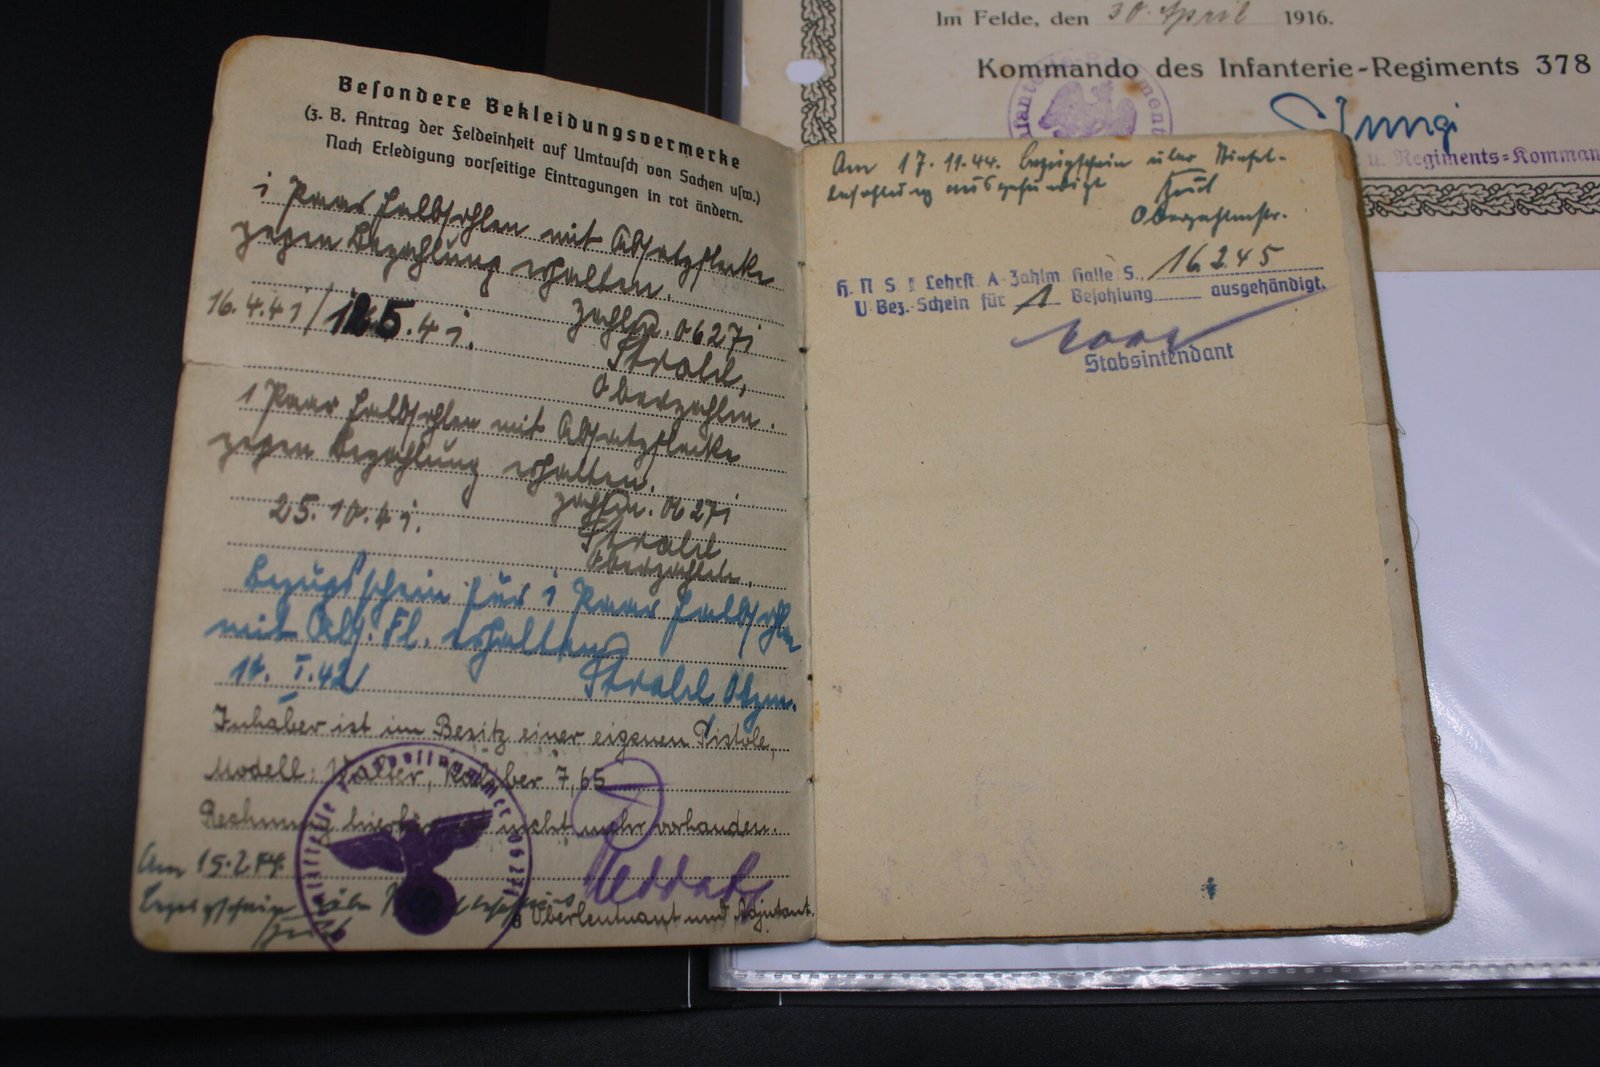 Besondere Bekleidungsvermerke
(z. B. Antrag der Feldeinheit auf Umtausch von Sachen usw.)
Nach Erledigung vorseitige Eintragungen in rot ändern.
1 Paar Halbsohlen mit Absatzflecke
gegen Bezahlung erhalten.
16.4.41 / 5.41. Zahlm. 06271
Strobl,
Oberzahlm.
1 Paar Halbsohlen mit Absatzflecke
gegen Bezahlung erhalten.
25.10.41. Zahlm. 06271
Strobl
Oberzahlm.
Bezugsschein für 1 Paar Halbsohlen
mit Abs. Fl. erhalten
14. I. 42 Strobl Obzm.
Inhaber ist im Besitz einer eigenen Pistole,
Modell: Walter, Kaliber 7,65
Rechnung hierüber nicht mehr vorhanden.
Am 15.2.44
Bezugschein über
Oberleutnant und Adjutant.
06271
Am 17.11.44. Bezugschein über Stiefel-
besohlung ausgehändigt
Oberzahlmstr.
H. N. S. Lehrst. A-Zahlm Halle S., 16.2.45
U Bez.-Schein für 1 Besohlung ausgehändigt.
Stabsintendant
Im Felde, den 30. April 1916.
Kommando des Infanterie-Regiments 378
u. Regiments=Komman